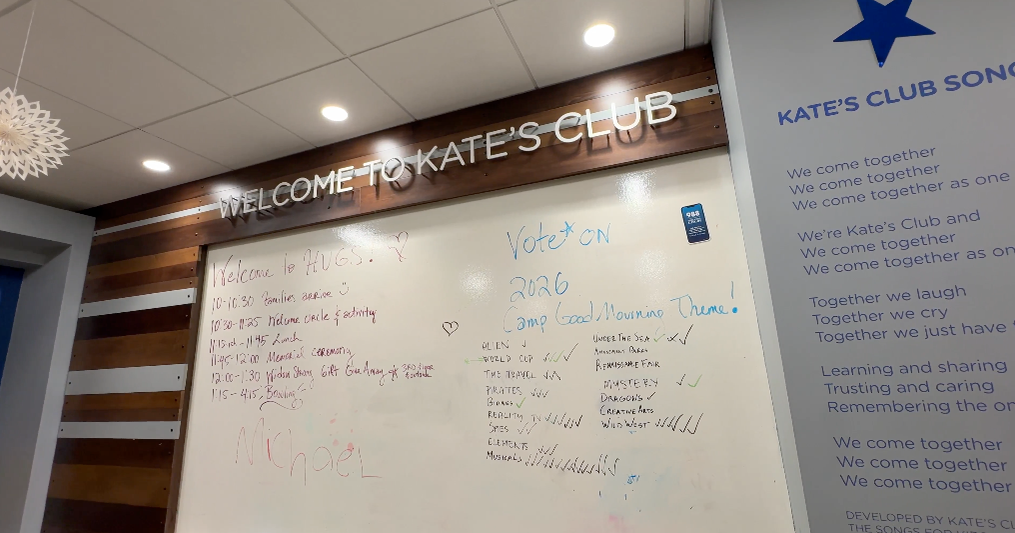 WELCOME TO KATE'S CLUB
Welcome to HUGS!
10-10:30 Families arrive
10:30-11:25 Welcome circle & activity
Lunch
11:45-12:00 Memorial ceremony
12:00-1:30 Strong Gift Give Away
1:15-4:15 Bowling
Michael
Vote* ON
2026
Camp Good Mourning Theme!
ALIEN ✓
WORLD CUP ✓✓✓
TIME TRAVEL ✓✓✓
PIRATES ✓✓✓
REALITY TV
ELEMENTS ✓✓✓
MUSICALS
UNDER THE SEA ✓✓✓
RENAISSANCE FAIR
MYSTERY ✓✓
DRAGONS ✓
CREATIVE ARTS
WILD WEST
988
KATE'S CLUB SONG
We come together
We come together
We come together as one
We're Kate's Club and
We come together
We come together as
Together we laugh
Together we cry
Together we just have
Learning and sharing
Trusting and caring
Remembering the
We come together
We come together
We come together
DEVELOPED BY KATE'S
THE SONGS FOR